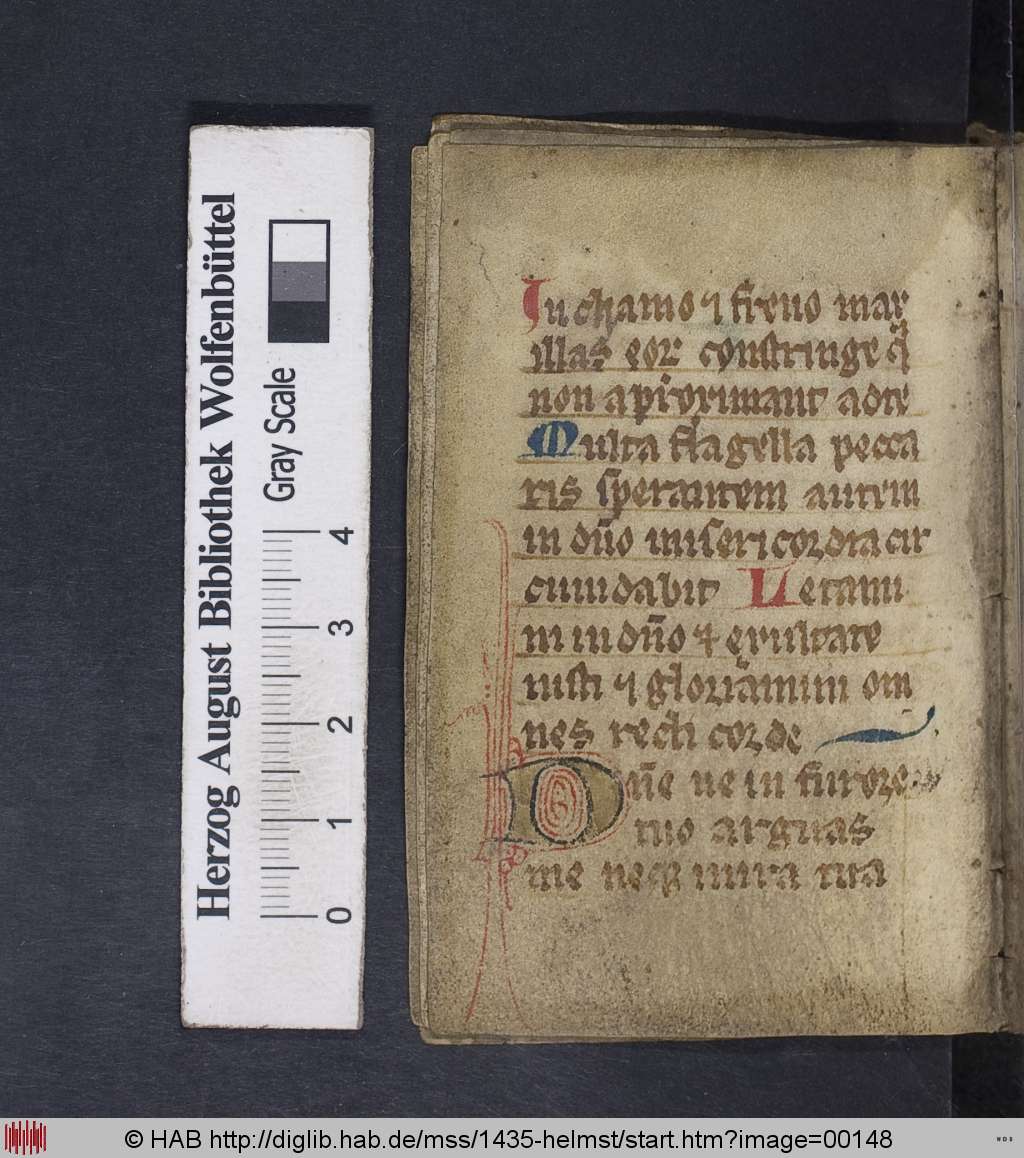 In chamo ⁊ freno max
illas eoꝝ constringe q̈
non approximant adte
Multa flagella pecca
ris sperantem autem
in dn̄o misericordia cir
cumdabit Letami
ni in dn̄o ⁊ exultate
iusti ⁊ gloriamini om
nes recti corde
Dn̄e ne in furore
tuo arguas
me neqꝫ in ira tua
Herzog August Bibliothek Wolfenbüttel
Gray Scale
0 1 2 3 4
© HAB http://diglib.hab.de/mss/1435-helmst/start.htm?image=00148